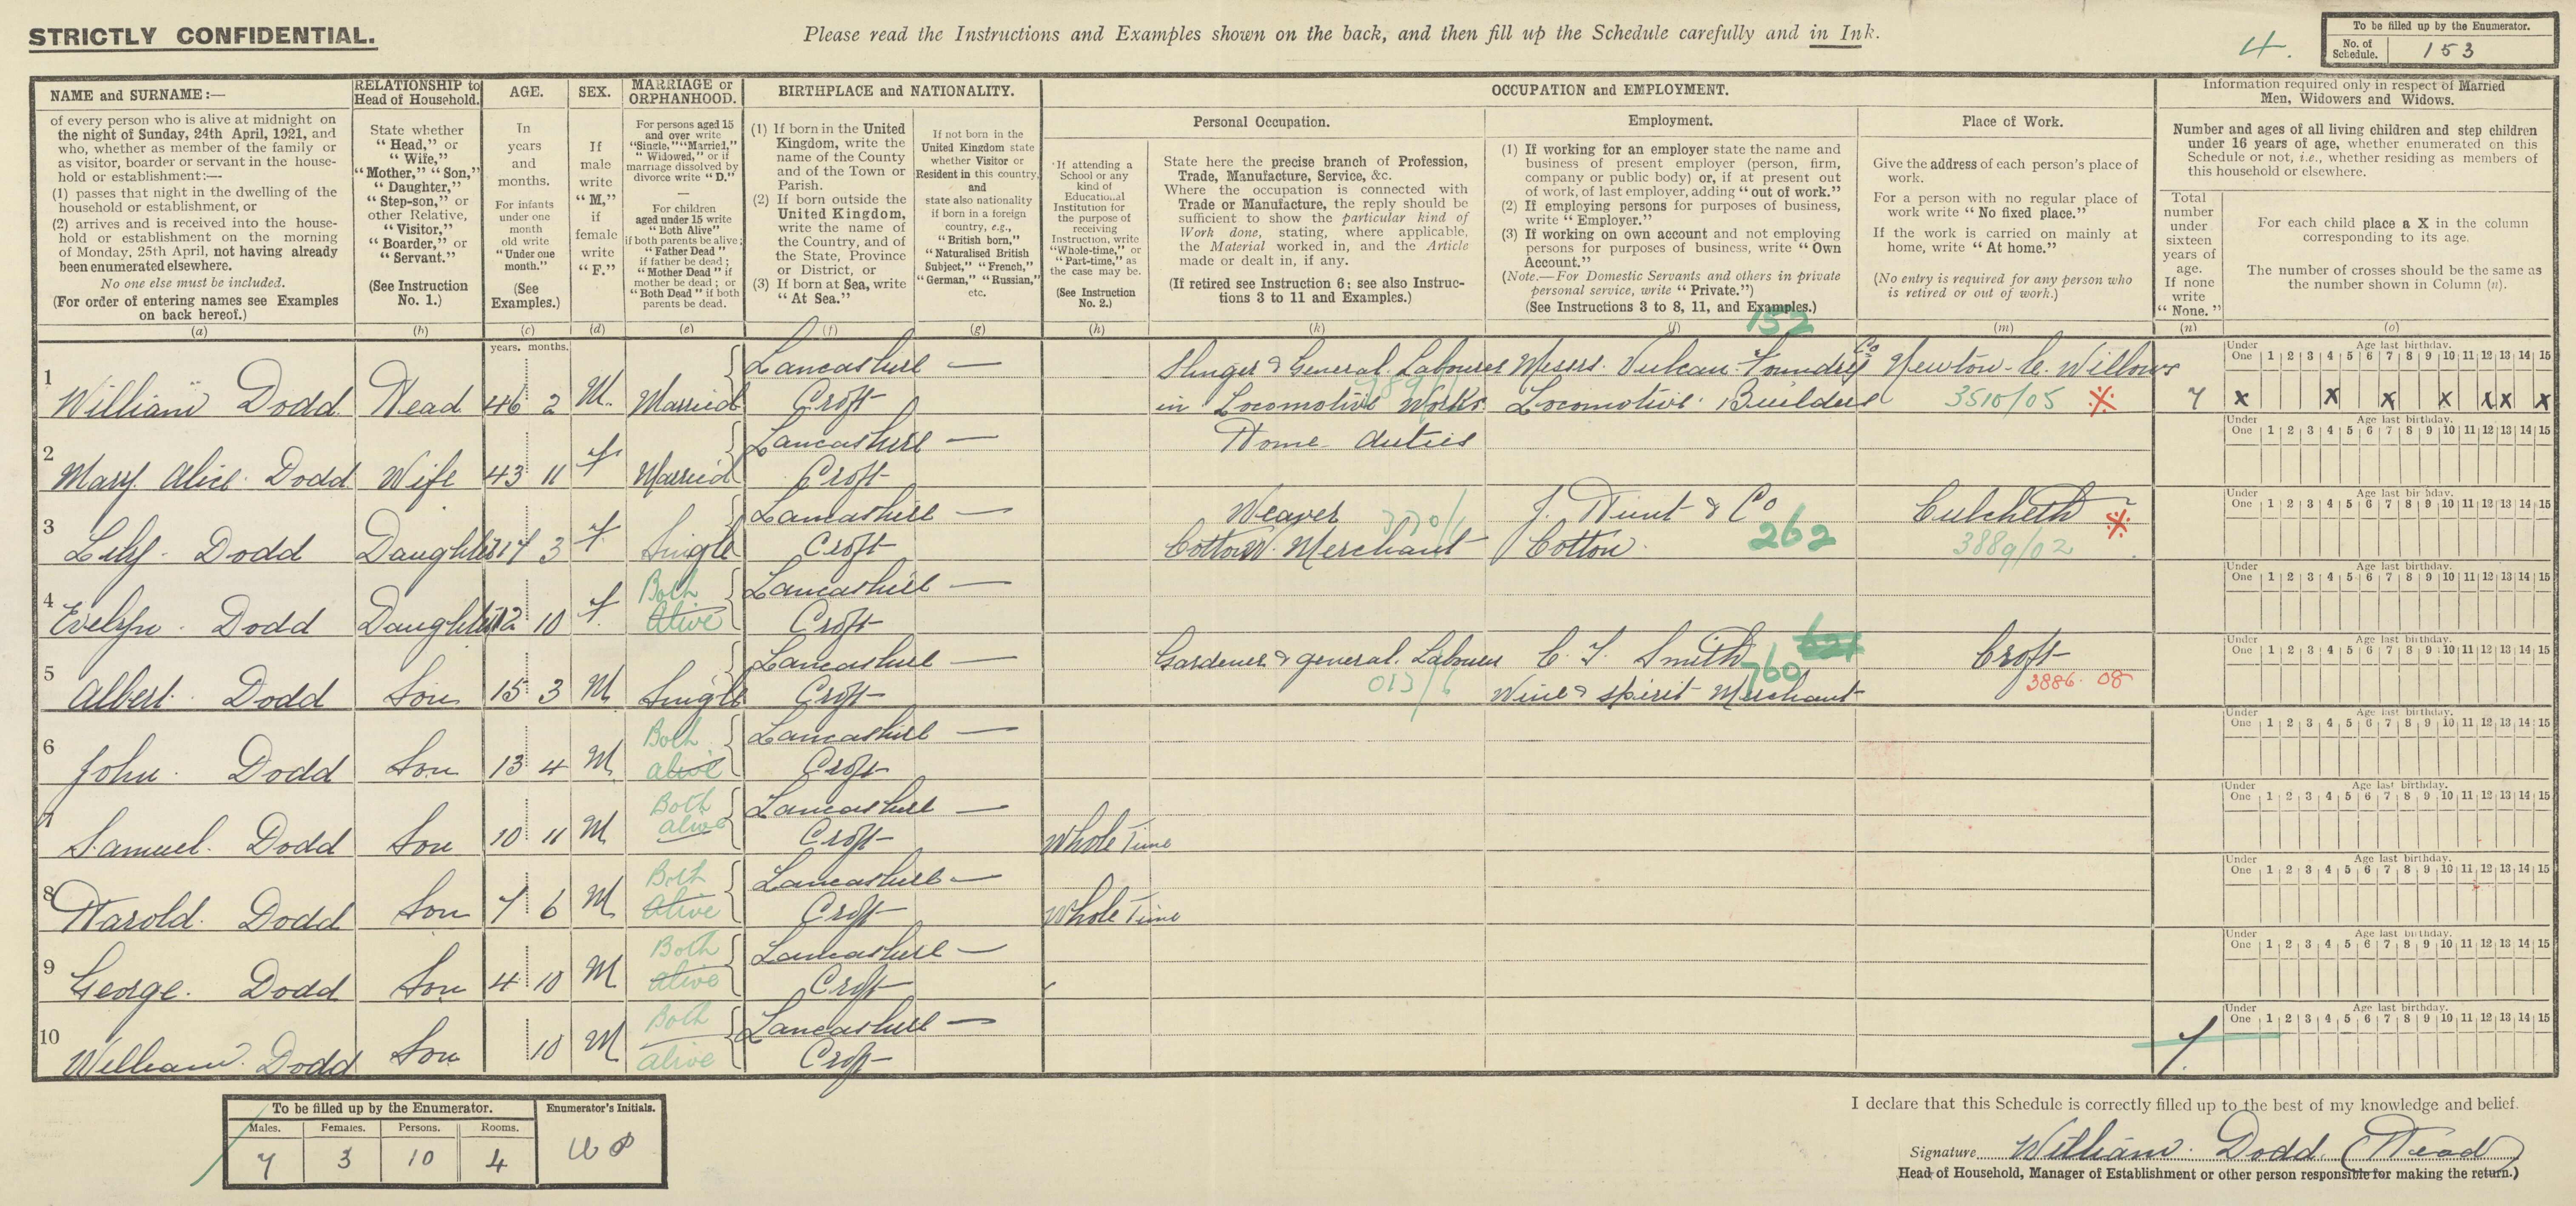 STRICTLY CONFIDENTIAL.
Please read the Instructions and Examples shown on the back, and then fill up the Schedule carefully and in Ink.
4.
To be filled up by the Enumerator.
No. of Schedule. 153
NAME and SURNAME:—
of every person who is alive at midnight on
the night of Sunday, 24th April, 1921, and
who, whether as member of the family or
as visitor, boarder or servant in the house-
hold or establishment:—
(1) passes that night in the dwelling of the
household or establishment, or
(2) arrives and is received into the house-
hold or establishment on the morning
of Monday, 25th April, not having already
been enumerated elsewhere.
No one else must be included.
(For order of entering names see Examples
on back hereof.)
(a)
RELATIONSHIP to
Head of Household.
State whether
"Head," or
"Wife,"
"Mother," "Son,"
"Daughter,"
"Step-son," or
other Relative,
"Visitor,"
"Boarder," or
"Servant."
(See Instruction
No. 1.)
(b)
AGE.
In
years
and
months.
For infants
under one
month
old write
"Under one
month."
(See
Examples.)
(c)
SEX.
If
male
write
"M,"
if
female
write
"F."
(d)
MARRIAGE or
ORPHANHOOD.
For persons aged 15
and over write
"Single," "Married,"
"Widowed," or if
marriage dissolved by
divorce write "D."
—
For children
aged under 15 write
"Both Alive"
if both parents be alive;
"Father Dead"
if father be dead;
"Mother Dead" if
mother be dead; or
"Both Dead" if both
parents be dead.
(e)
BIRTHPLACE and NATIONALITY.
(1) If born in the United
Kingdom, write the
name of the County
and of the Town or
Parish.
(2) If born outside the
United Kingdom,
write the name of
the Country, and of
the State, Province
or District, or
(3) If born at Sea, write
"At Sea."
(f)
If not born in the
United Kingdom state
whether Visitor or
Resident in this country,
and
state also nationality
if born in a foreign
country, e.g.,
"British born,"
"Naturalised British
Subject," "French,"
"German," "Russian,"
etc.
(g)
OCCUPATION and EMPLOYMENT.
Personal Occupation.
If attending a
School or any
kind of
Educational
Institution for
the purpose of
receiving
Instruction, write
"Whole-time," or
"Part-time," as
the case may be.
(See Instruction
No. 2.)
(h)
State here the precise branch of Profession,
Trade, Manufacture, Service, &c.
Where the occupation is connected with
Trade or Manufacture, the reply should be
sufficient to show the particular kind of
Work done, stating, where applicable,
the Material worked in, and the Article
made or dealt in, if any.
(If retired see Instruction 6; see also Instruc-
tions 3 to 11 and Examples.)
(k)
Employment.
(1) If working for an employer state the name and
business of present employer (person, firm,
company or public body) or, if at present out
of work, of last employer, adding "out of work."
(2) If employing persons for purposes of business,
write "Employer."
(3) If working on own account and not employing
persons for purposes of business, write "Own
Account."
(Note.—For Domestic Servants and others in private
personal service, write "Private.")
(See Instructions 3 to 8, 11, and Examples.)
(l)
Place of Work.
Give the address of each person's place of
work.
For a person with no regular place of
work write "No fixed place."
If the work is carried on mainly at
home, write "At home."
(No entry is required for any person who
is retired or out of work.)
(m)
Information required only in respect of Married
Men, Widowers and Widows.
Number and ages of all living children and step children
under 16 years of age, whether enumerated on this
Schedule or not, i.e., whether residing as members of
this household or elsewhere.
Total
number
under
sixteen
years of
age.
If none
write
"None."
(n)
For each child place a X in the column
corresponding to its age.
The number of crosses should be the same as
the number shown in Column (n).
(o)
years. months.
152
1 William Dodd Head 46 2 M. Married Lancashire — Croft
Slinger & General Labourer in Locomotive Works
Messrs. Vulcan Foundry Co Locomotive Builders
Newton-le-Willows 3510/05
7 x x x x x x x
2 Mary Alice Dodd Wife 43 11 F Married Lancashire — Croft
Home duties
3 Lily Dodd Daughter 17 3 F Single Lancashire — Croft
Weaver Cotton Merchant
J. Hunt & Co Cotton 262
Culcheth 3889/02
4 Evelyn Dodd Daughter 12 10 F Both Alive Lancashire — Croft
5 Albert Dodd Son 15 3 M Single Lancashire — Croft
Gardener & general Labourer
C. T. Smith Wine & spirit Merchant 760
Croft 3886. 08
6 John Dodd Son 13 4 M Both alive Lancashire — Croft
7 Samuel Dodd Son 10 11 M Both alive Lancashire — Croft Whole Time
8 Harold Dodd Son 7 6 M Both Alive Lancashire — Croft Whole Time
9 George Dodd Son 4 10 M Both alive Lancashire — Croft
10 William Dodd Son 10 M Both alive Lancashire — Croft
7
Under One 1 2 3 4 5 6 7 8 9 10 11 12 13 14 15
Age last birthday.
To be filled up by the Enumerator.
Males. Females. Persons. Rooms.
7 3 10 4
Enumerator's Initials.
I declare that this Schedule is correctly filled up to the best of my knowledge and belief.
Signature William Dodd (Head)
Head of Household, Manager of Establishment or other person responsible for making the return.)